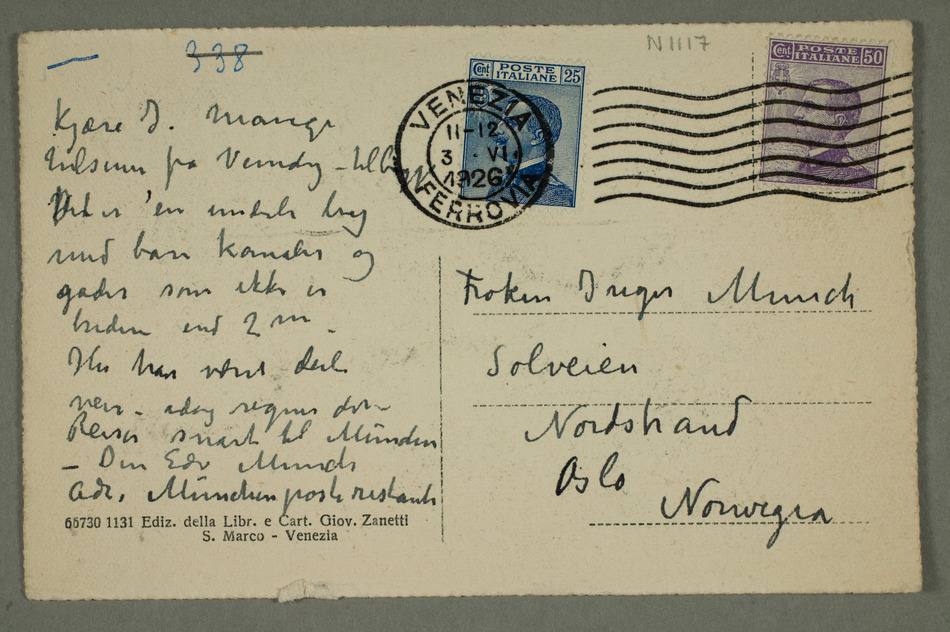 338
N 1117
Cent POSTE ITALIANE 25
Cent POSTE ITALIANE 50
VENEZIA
11-12
3 . VI.
1926
FERROVIA
Kjære I. Mange
hilsener fra Venedig
Det er en underlig by
med bare kanaler og
gader som ikke er
bredere end 2 m –
Her har været deilig
veir – idag regner det –
Reiser snart til München
– Din Edv Munch
Adr. München poste restante
66730 1131 Ediz. della Libr. e Cart. Giov. Zanetti
S. Marco - Venezia
Frøken Inger Munch
Solveien
Nordstrand
Oslo
Norwegia